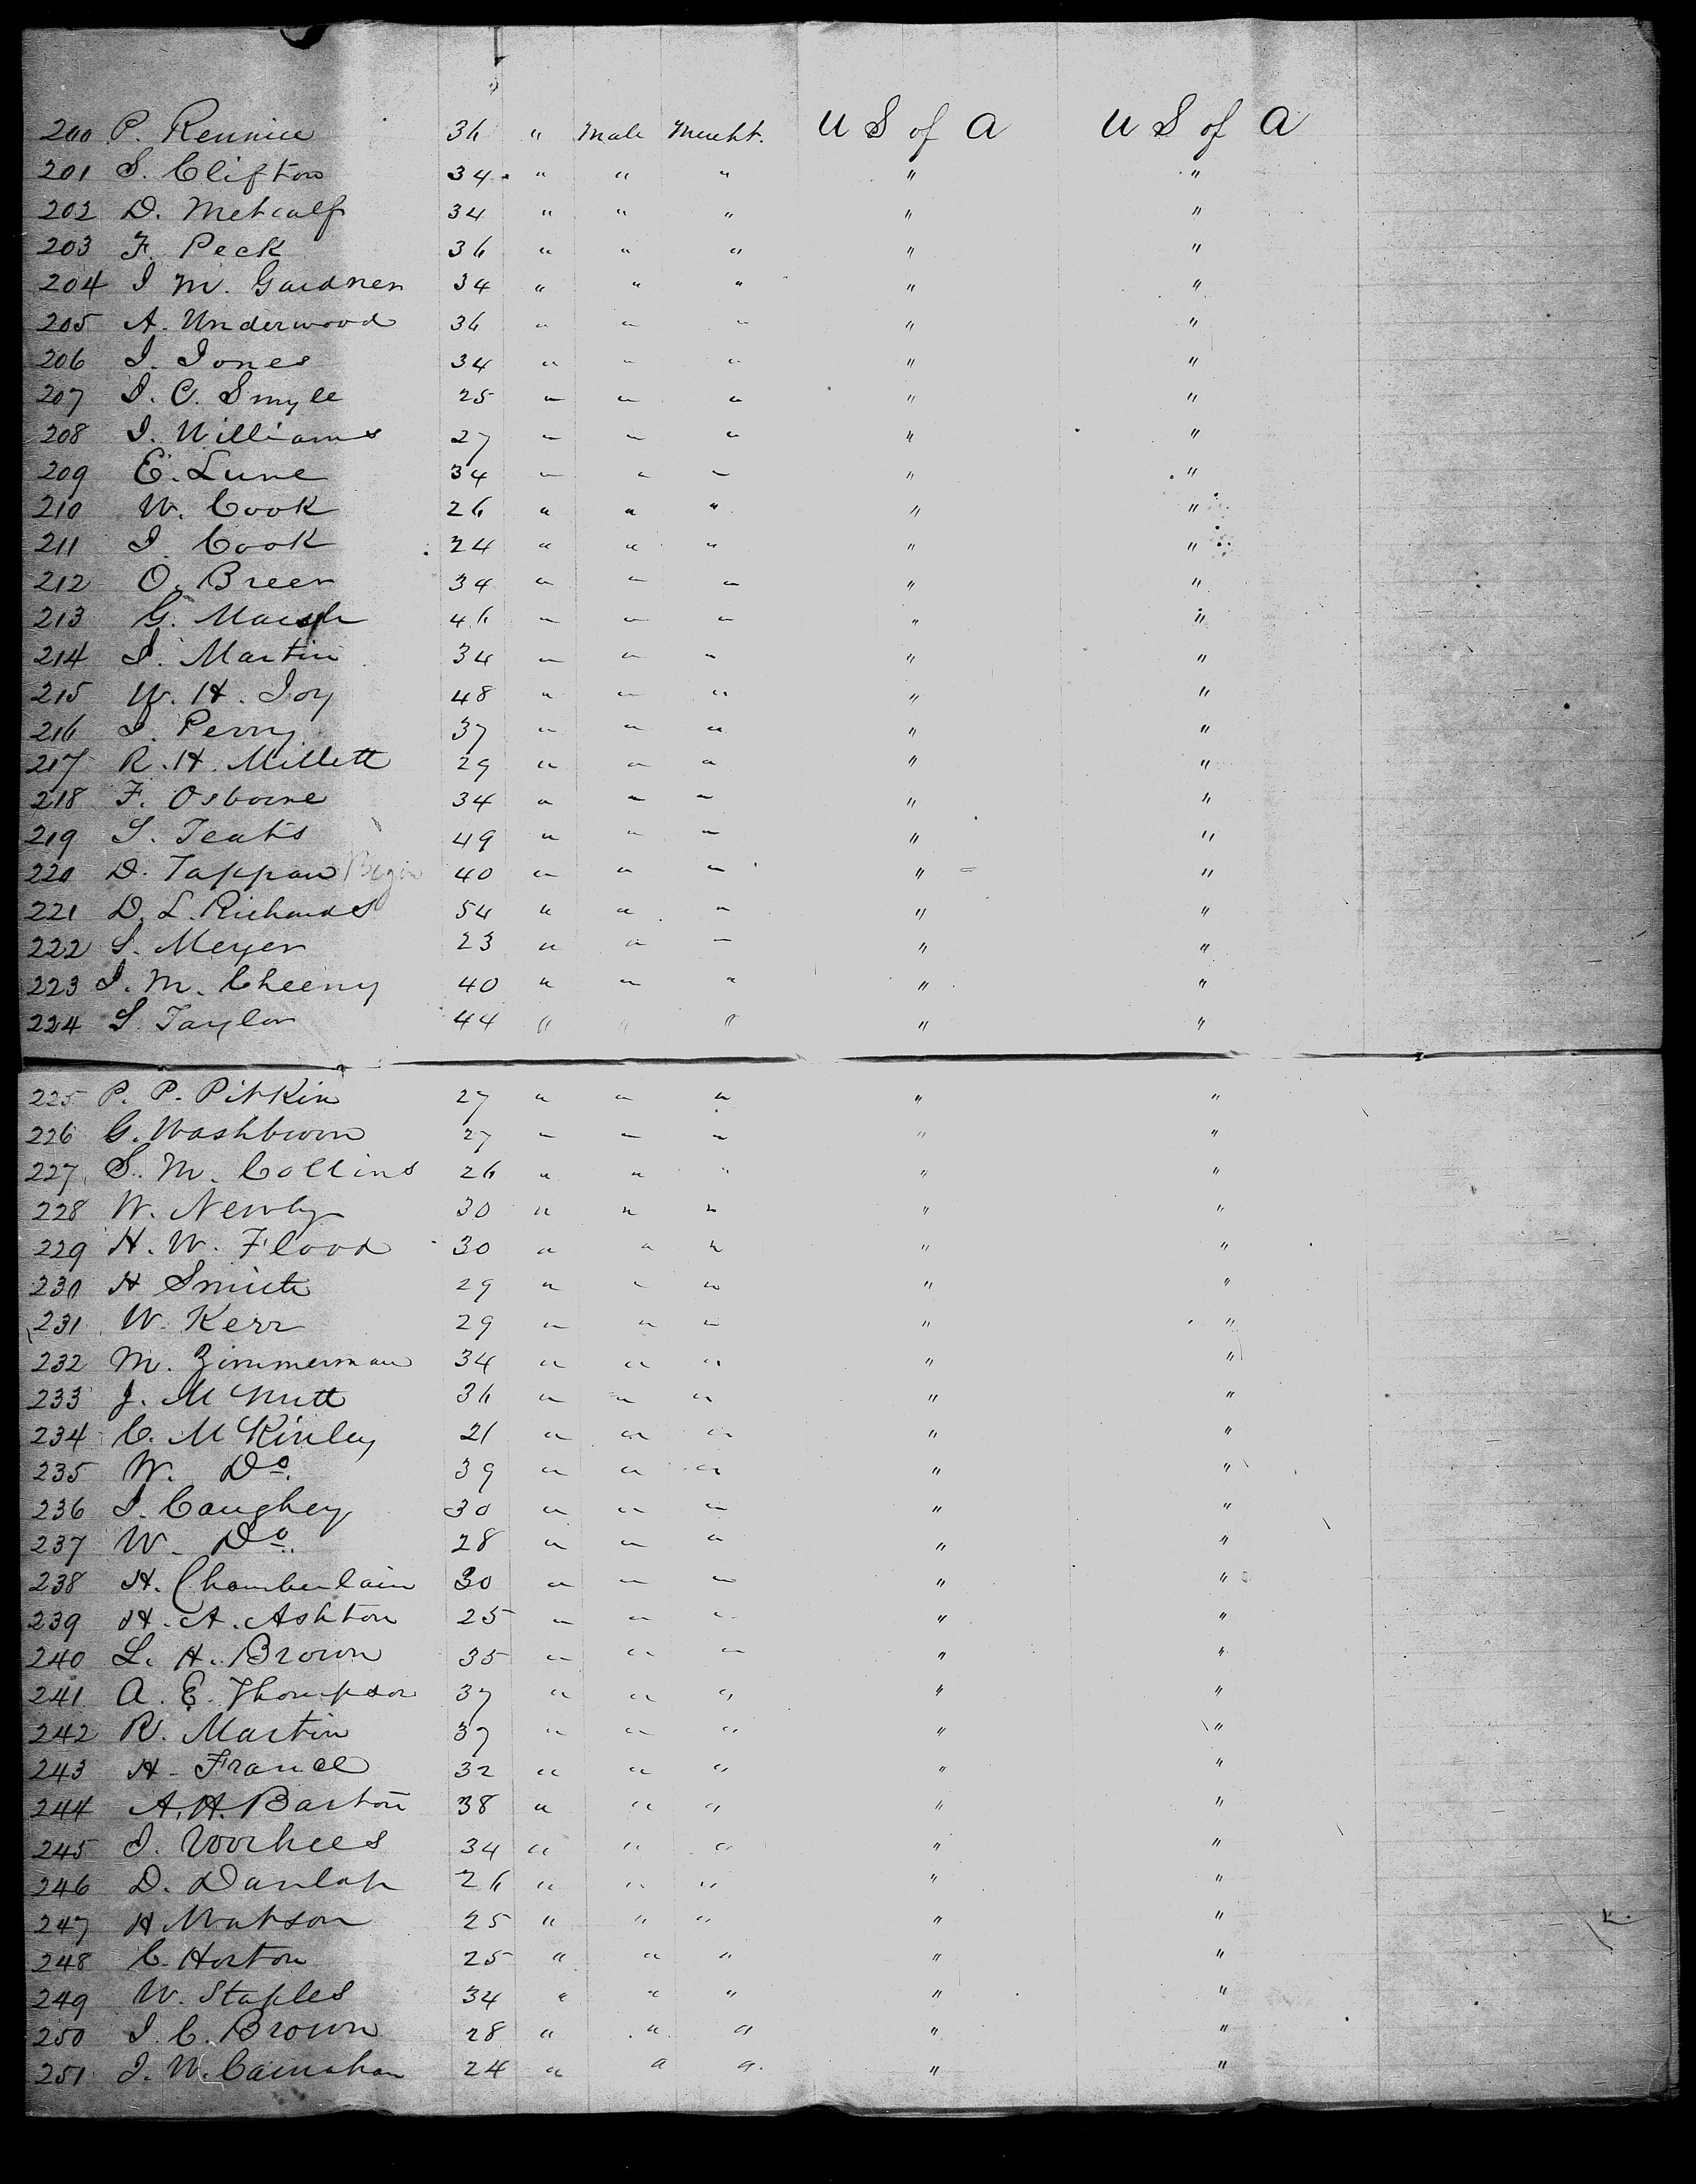 200 P. Rennie 36 " Male Mercht. U S of A U S of A
201 S. Clifton 34 " " " " "
202 D. Metcalf 34 " " " " "
203 F. Peck 36 " " " " "
204 I M. Gardner 34 " " " " "
205 A. Underwood 36 " " " " "
206 I. Iones 34 " " " " "
207 I. C. Smyle 25 " " " " "
208 I. Williams 27 " " " " "
209 E. Lune 34 " " " " "
210 W. Cook 26 " " " " "
211 I. Cook 24 " " " " "
212 O. Breen 34 " " " " "
213 G. Marsh 46 " " " " "
214 I. Martin 34 " " " " "
215 W. H. Joy 48 " " " " "
216 I. Perry 37 " " " " "
217 R. H. Millett 29 " " " " "
218 F. Osborne 34 " " " " "
219 S. Teats 49 " " " " "
220 D. Tappan 40 " " " " "
221 D. L. Richards 54 " " " " "
222 S. Meyer 23 " " " " "
223 I. M. Cheeny 40 " " " " "
224 S. Taylor 44 " " " " "
225 P. P. Pitkin 27 " " " " "
226 G. Washburn 27 " " " " "
227 S. M. Collins 26 " " " " "
228 W. Newly 30 " " " " "
229 H. W. Flood 30 " " " " "
230 H Smith 29 " " " " "
231 W. Kerr 29 " " " " "
232 M. Zimmerman 34 " " " " "
233 J. McNutt 36 " " " " "
234 C. McKinley 21 " " " " "
235 W. Do. 39 " " " " "
236 I. Caughey 30 " " " " "
237 W. Do. 28 " " " " "
238 H. Chamberlain 30 " " " " "
239 H. A. Ashton 25 " " " " "
240 L. H. Brown 35 " " " " "
241 A. E. Thompson 37 " " " " "
242 R. Martin 37 " " " " "
243 H. France 32 " " " " "
244 A. H. Barton 38 " " " " "
245 I. Voorhees 34 " " " " "
246 D. Dunlap 26 " " " " "
247 H Watson 25 " " " " "
248 C. Horton 25 " " " " "
249 W. Staples 34 " " " " "
250 I. C. Brown 28 " " " " "
251 I. W. Carnahan 24 " " " " "